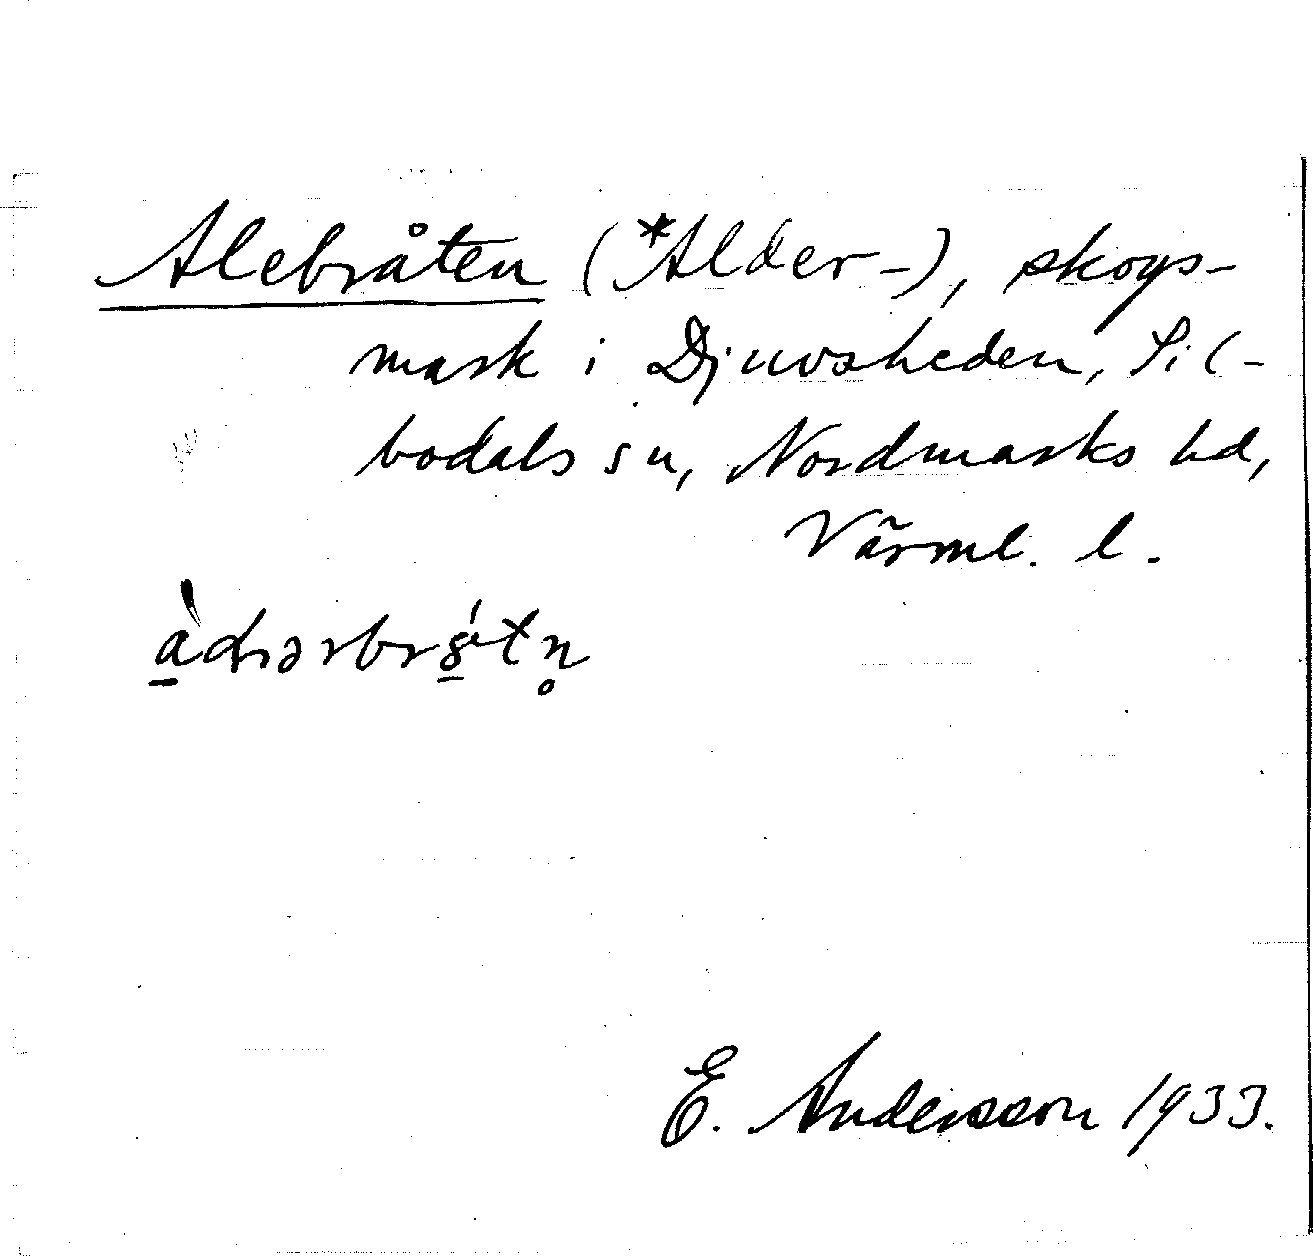 Alebråten (*Alder-), skogs-
mark i Djuvsheden, Sil-
bodals sn, Nordmarks hd,
Värml. l.
E. Andersson 1933.